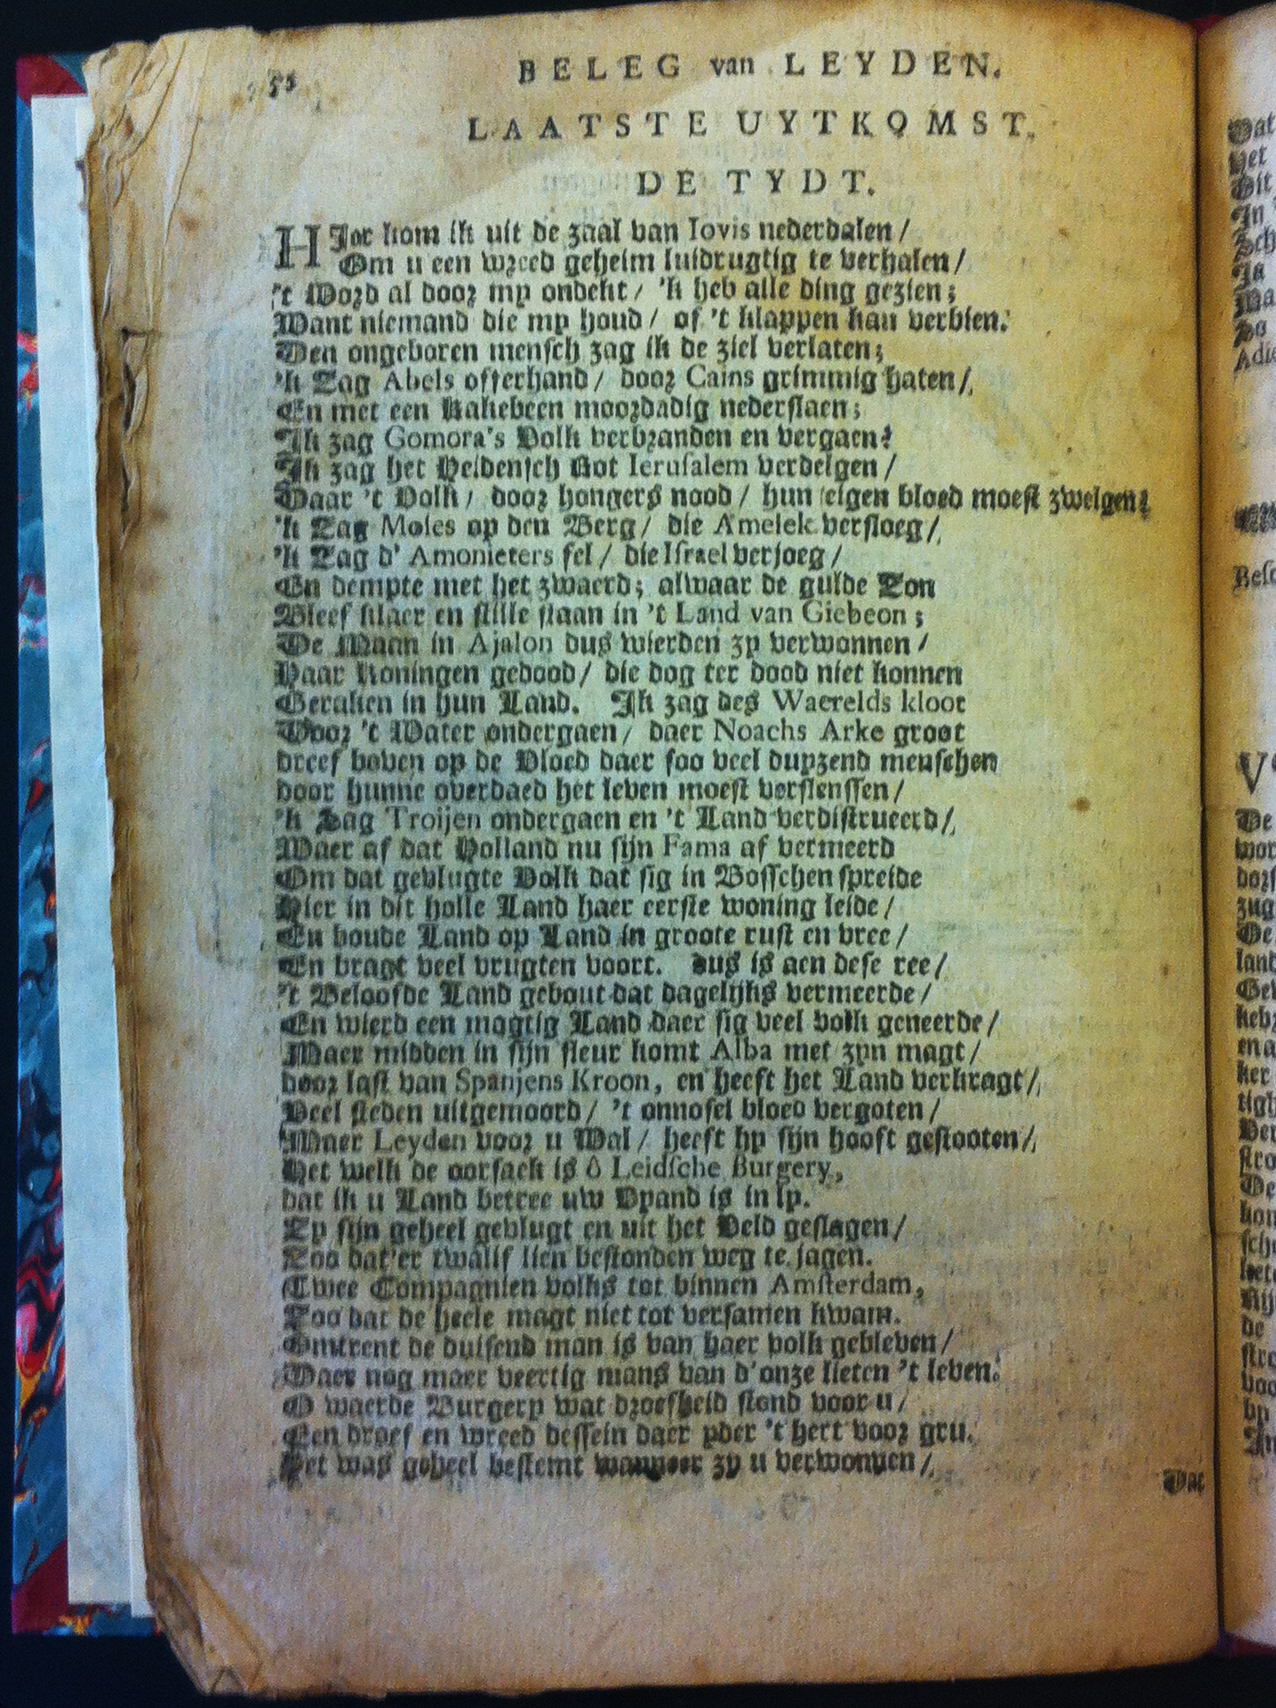 BELEG van LEYDEN.
LAATSTE UYTKOMST.
DE TYDT.
HIer kom ik uit de zaal van Iovis nederdalen /
Om u een wreed geheim luidrugtig te verhalen /
't Word al door my ondekt / 'k heb alle ding gezien;
Want niemand die my houd / of 't klappen kan verbien.
Den ongeboren mensch zag ik de ziel verlaten;
'k Zag Abels offerhand / door Cains grimmig haten /
En met een Kakebeen moordadig nederslaen;
Ik zag Gomora's Volk verbranden en vergaen:
Ik zag het Heidensch Rot Ierusalem verdelgen /
Daar 't Volk / door hongers nood / hun eigen bloed moest zwelgen:
'k Zag Moses op den Berg / die Amelek versloeg /
'k Zag d' Amonieters fel / die Israel verjoeg /
En dempte met het zwaerd; alwaar de gulde Zon
Bleef klaer en stille staan in 't Land van Giebeon;
De Maan in Ajalon dus wierden zy verwonnen /
Haar Koningen gedood / die dog ter dood niet konnen
Geraken in hun Land. Ik zag des Waerelds kloot
Door 't Water ondergaen / daer Noachs Arke groot
dreef boven op de Vloed daer soo veel duyzend menschen
door hunne overdaed het leven moest verslenssen /
'k Zag Troijen ondergaen en 't Land verdistrueerd /
Waer af dat Holland nu sijn Fama af vermeerd
Om dat gevlugte Volk dat sig in Bosschen spreide
Hier in dit holle Land haer eerste woning leide /
En boude Land op Land in groote rust en vree /
En bragt veel vrugten voort. dus is aen dese ree /
't Beloofde Land gebout dat dagelijks vermeerde /
En wierd een magtig Land daer sig veel volk geneerde /
Maer midden in sijn fleur komt Alba met zyn magt /
door last van Spanjens Kroon, en heeft het Land verkragt /
Veel steden uitgemoord / 't onnosel bloed vergoten /
Maer Leyden voor u Wal / heeft hy sijn hooft gestooten /
Het welk de oorsack is ô Leidsche Burgery,
dat ik u Land betree uw Vyand is in ly.
Zy sijn geheel gevlugt en uit het Veld geslagen /
Zoo dat'er twalif lien bestonden weg te jagen.
Twee Compagnien volks tot binnen Amsterdam,
Zoo dat de heele magt niet tot versamen kwam.
Omtrent de duisend man is van haer volk gebleven /
Daer nog maer veertig mans van d'onze lieten 't leven:
O waerde Burgery wat droefheid stond voor u /
Een droef en wreed dessein daer yder 't hert voor gru.
Het was geheel bestemt wanneer zy u verwonnen /
Dat